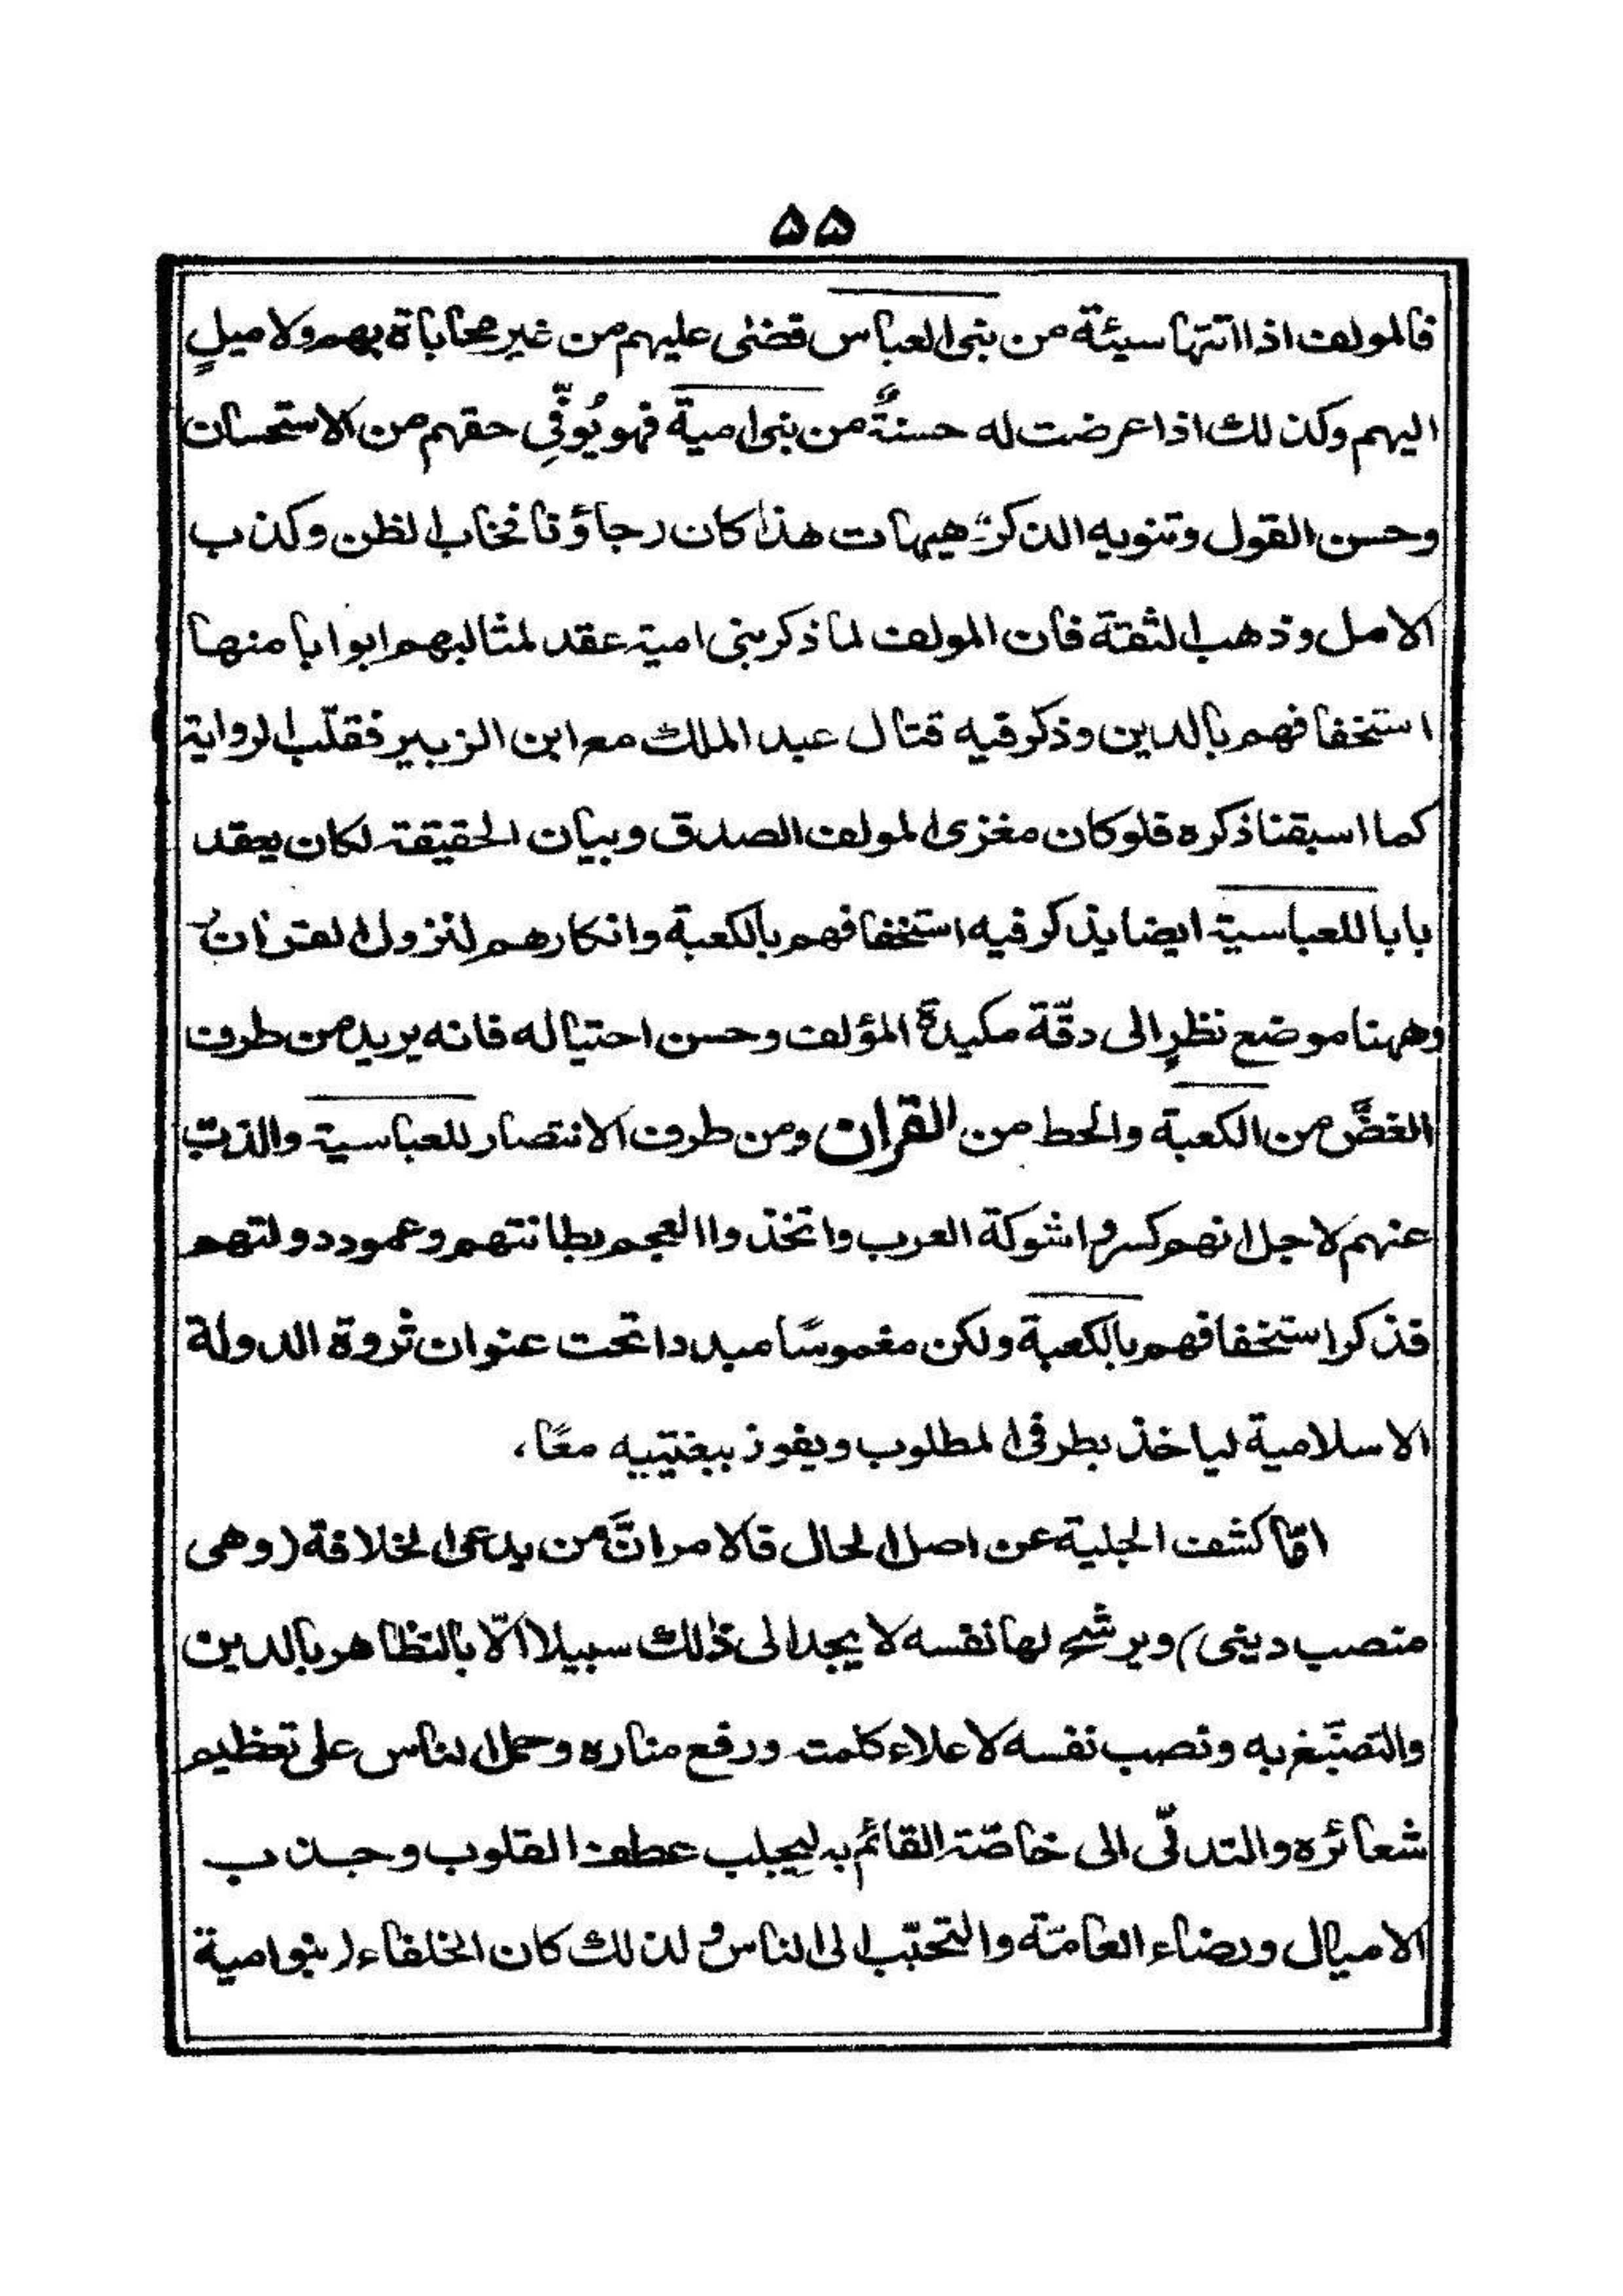 ۵۵
فالمولف اذا اتتها سيئة من بنى العباس قضٰى عليهم من غير محاباة بهم ولا ميلٍ
اليهم وكذلك اذا عرضت له حسنةٌ من بنى امية فهو يُوفّىِ حقهم من الاستحسان
وحسن القول وتنويه الذكر، هيهات هذا كان رجاؤنا فخاب الظن وكذب
الامل وذهب الثقة فان المولف لما ذكر بنى امية عقد لمثالبهم ابوابا منها
استخفافهم بالدين وذكر فيه قتال عبد الملك مع ابن الزبير فقلّب الرواية
كما اسبقنا ذكره فلو كان مغزى المولف الصدق وبيان الحقيقة لكان يعقد
بابا للعباسية ايضا يذكر فيه استخفافهم بالكعبة وانكارهم لنزول القران
وههنا موضع نظرٍ الى دقّة مكيدة المؤلف وحسن احتياله فانه يريد من طرف
الغضَّ من الكعبة والحط من القران ومن طرف الانتصار للعباسية والذب
عنهم لاجل انهم كسروا شوكة العرب واتخذوا العجم بطانتهم وعمود دولتهم
فذكر استخفافهم بالكعبة ولكن مغموسًا مبددا تحت عنوان ثروة الدولة
الاسلامية لياخذ بطرفى المطلوب ويفوز ببغيتيه معًا،
امّا كشف الجلية عن اصل الحال فالامر انَّ من يدعى الخلافة (وهى
منصب دينى) ويرشح لها نفسه لا يجد الى ذلك سبيلا الّا بالتظاهر بالدين
والتصبّغ به ونصب نفسه لاعلاء كلمته ورفع مناره وحمل الناس على تعظيم
شعائره والتدلّى الى خاصّة القائم به ليجلب عطف القلوب وجذب
الاميال ورضاء العامّة والتحبّب الى الناس ولذلك كان الخلفاء (بنو امية